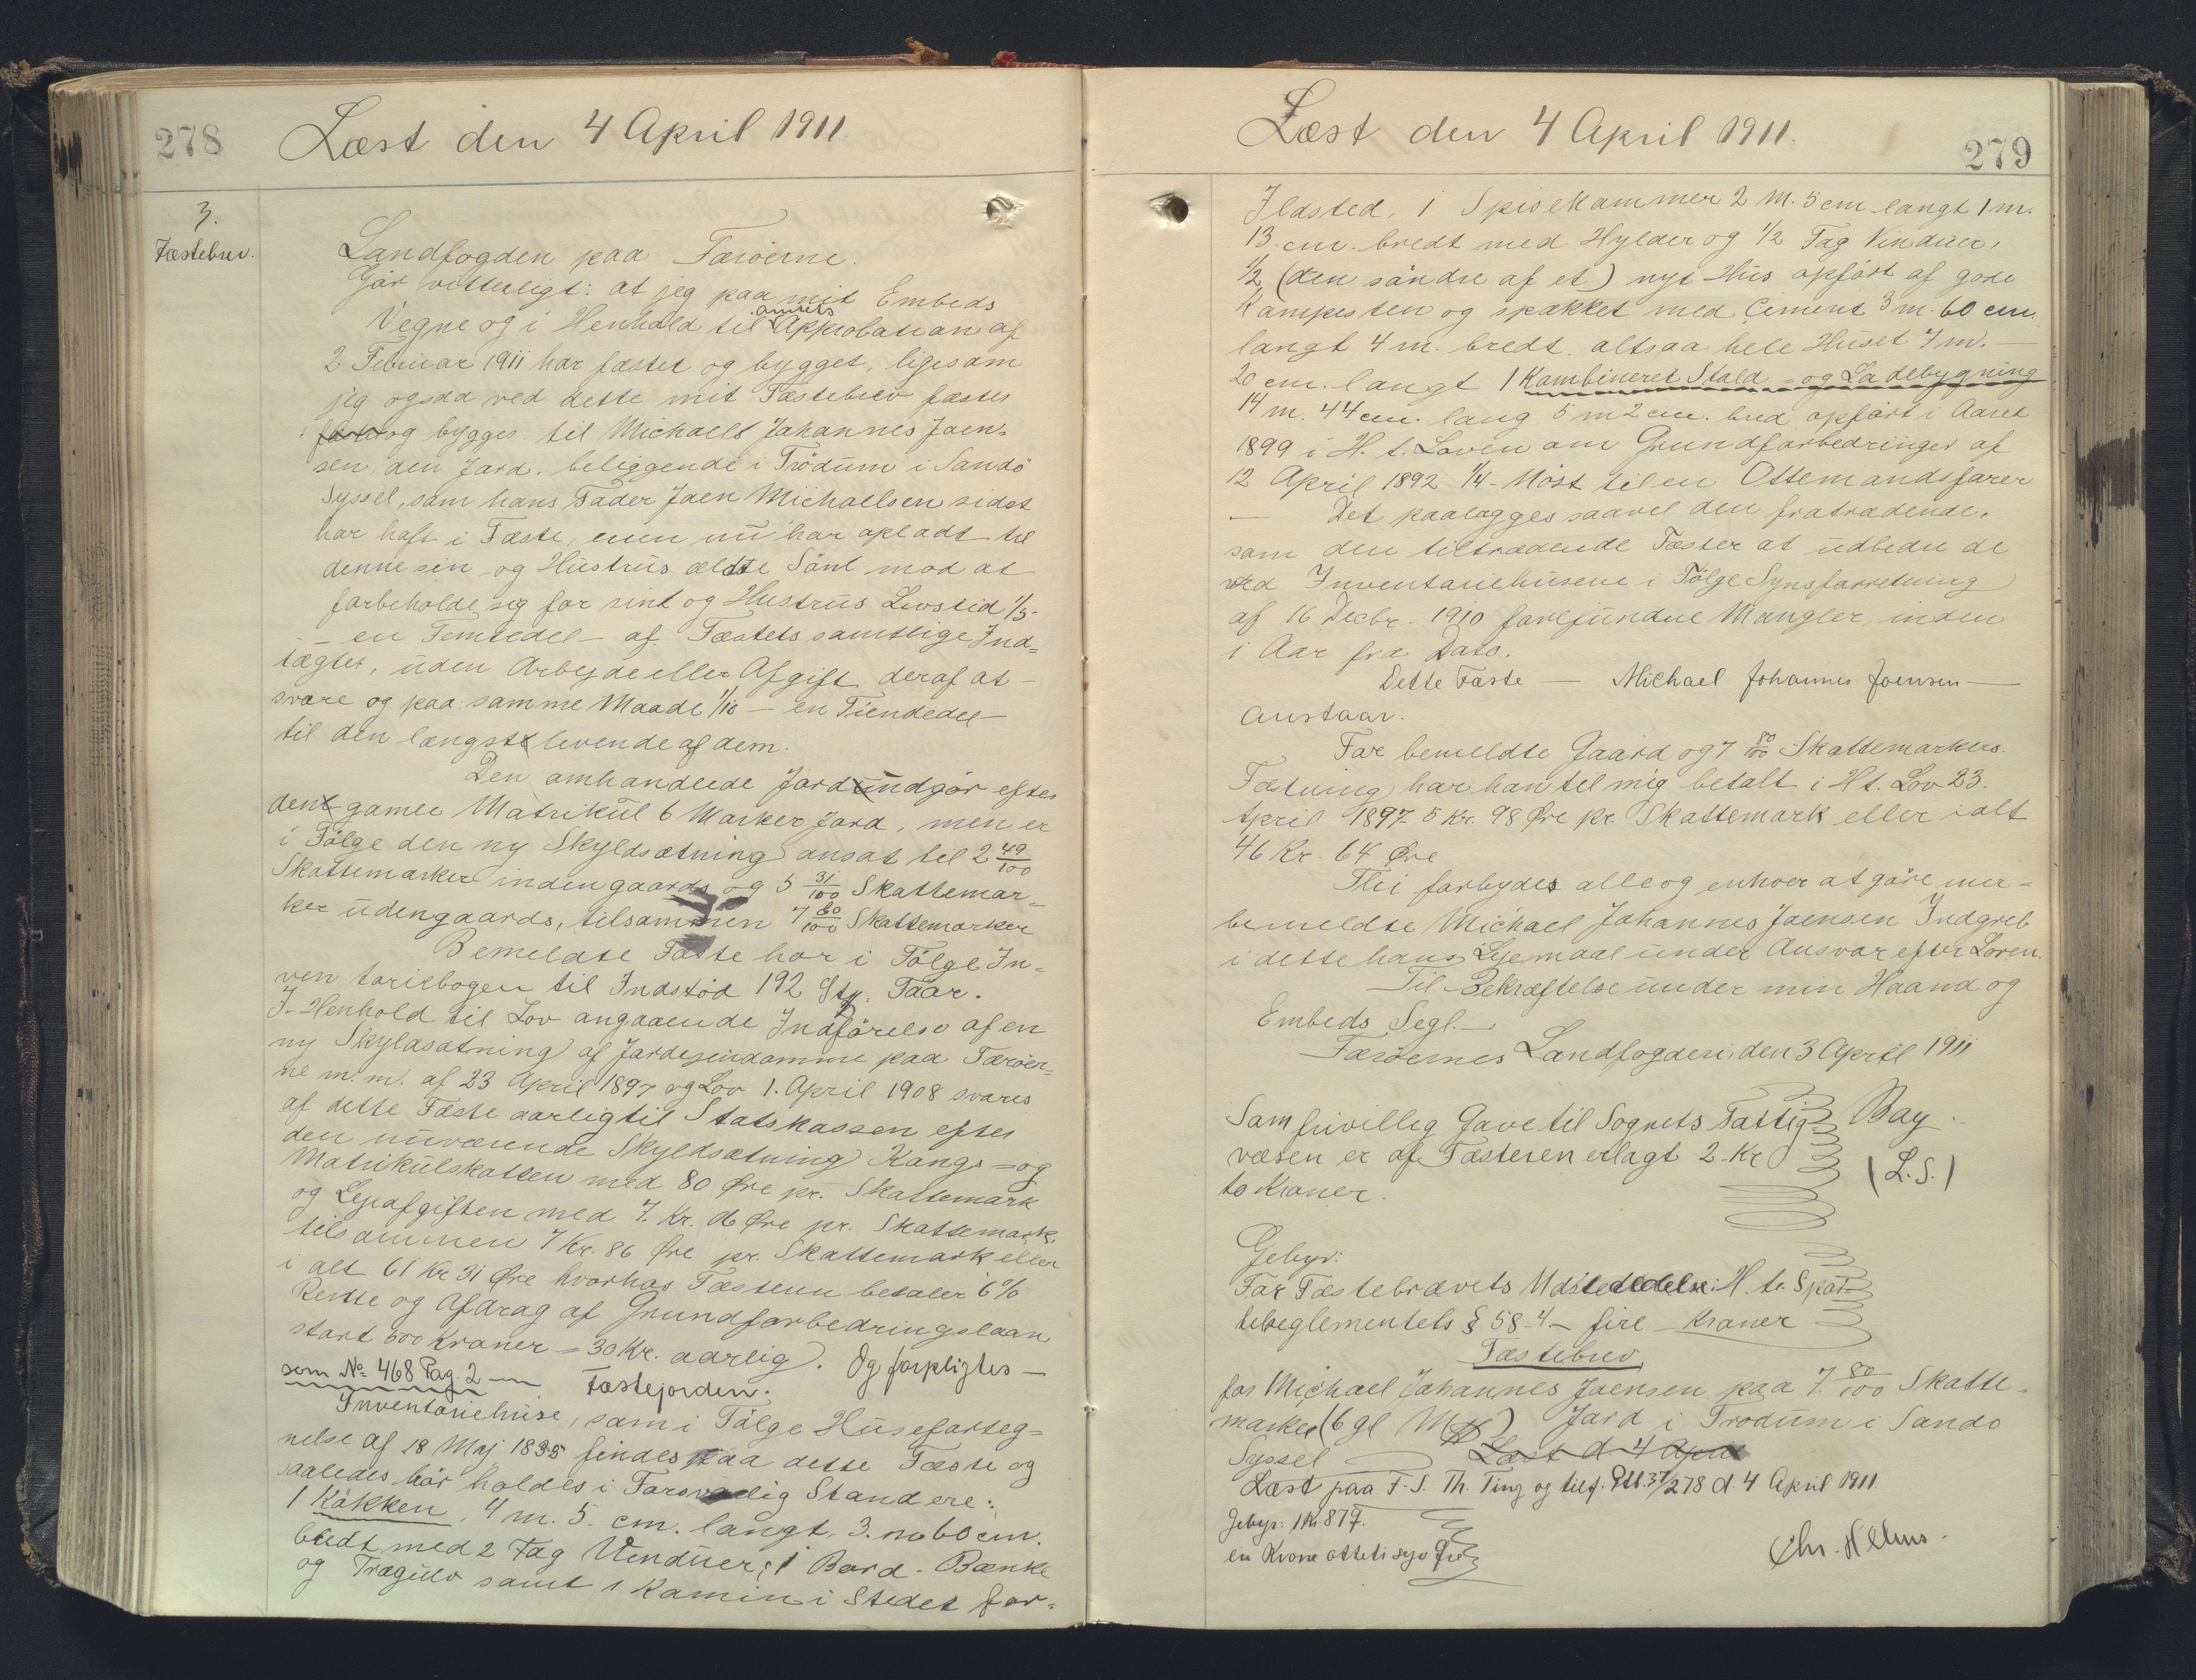 278
Læst den 4 April 1911
3.
Fæstebrev.
Landfogden paa Færøerne.
Gör vitterligt: at jeg paa mit Embeds
Vegne og i Henhold til Amtets Approbation af
2 Februar 1911 har fæstet og bygget, ligesom
jeg ogsaa ved dette mit Fæstebrev fæster
og bygger til Michaell Johannes Joen-
sen, den Jord, beliggende i Tródum i Sandö
Syssel, som hans Fader Joen Michaelsen sidst
har haft i Fæste, men nu har opladt til
denne sin og Hustrus ældste Sönl mod at
forbeholde sig for sint og Hustrus Livstid 1/5-
- en Femtedel - af Fæstets samtlige Ind=
tægter, uden Arbejde eller Afgift deraf at -
svare og paa samme Maade 1/10 - en Tiendedel -
til den længst levende af dem.
Den omhandlede Jord undgör efter
den gamle Matrikul 6 Marker Jord, men er
i Fölge den ny Skyldsætning ansat til 2 49/100
Skattemarker indengaards og 5 31/100 Skattemar-
ker udengaards, tilsammen 7 80/100 Skattemarker
Bemeldte Fæste har i Fölge In=
ventariebogen til Indstöd 192 Sty. Faar.
I Henhold til Lov angaaende Indförelse af en
ny Skyldsætning af Jordejendomme paa Færöer=
ne m.m. af 23 April 1897 og Lov 1. April 1908 svares
af dette Fæste aarlig til Statskassen efter
den nuværende Skyldsætning Kongs = og
Matrikulskatten med 80 Øre pr. Skattemark
og Lejeafgiften med 7. Kr. 06 Øre pr. Skattemark,
tilsammen 7 Kr. 86 Øre pr. Skattemark eller
i alt 61 Kr 31 Øre hvorhos Fæsteren betaler 6%
Rente og Afdrag af Grundforbedringslaan
stort 500 Kroner = 30 Kr. aarlig. Og forpligtes -
som No 468 Pag. 2 — Fæstejorden.
Inventariehuse, som i Fölge Huseforteg=
nelse af 18 Maj 1835 findes paa dette Fæste og
saaledes bör holdes i Forsvarlig Stand ere:
1 Kökken, 4 m. 5. cm. langt, 3. m 60 cm.
bredt med 2 Fag Vinduer, 1 Bord. Bænke
og Trægulv samt 1 Kamin i Stedet for=
Læst den 4 April 1911.
279
Ildsted, 1 Spisekammer 2 M. 5 cm langt 1 m.
13. cm. bredt med Hylder og 1/2 Fag Vinduer,
1/2 (den söndre af et) nyt Hus opfört af gode
Kampesten og spækket med Ciment 3 m. 60 cm.
langt 4 m. bredt. altsaa hele Huset 7 m. —
20 cm. langt 1 Kombineret Stald = og Ladebygning
14 m. 44 cm. lang 5 m 2 cm. bred opfört i Aaret
1899 i H. t. Loven om Grundforbedringer af
12 April 1892 1/4 - Nóst til en Ottemandsfarer
— Det paalægges saavel den fratrædende,
som den tiltrædende Fæster at udbedre de
ved Inventariehusene i Fölge Synsforretning
af 16 Decbr. 1910 forefundne Mangler, inden
1 Aar fra Dato.
Dette Fæste — Michael Johannes Joensen —
anstaar.
For bemeldte Gaard og 7 80/100 Skattemarkers.
Fæstning har han til mig betalt i H t. Lov 23.
April 1897 5 Kr. 98 Øre pr. Skattemark eller ialt
46 Kr. 64 Øre
Thi forbydes alle og enhver at göre mer=
bemeldte Michael Johannes Joensen Indgreb
i dette hans Lejemaal under Ansvar efter Loven.
Til Bekræftelse under min Haand og
Embeds Segl. —
Færöernes Landfogderi, den 3 April 1911
Som frivillig Gave til Sognets Fattig-
væsen er af Fæsteren erlagt 2 Kr
to Kroner.
Bay.
(L. S.)
Gebyr:
For Fæstebrævets Udstedelse: H. t. Spor-
telreglementets § 58 - 4 - fire - Kroner
Fæstebrev
for Michael Johannes Joensen paa 7. 80/100 Skatte-
marker (6 gl M) Jord i Trodum i Sando
Syssel Læst d 4 April
Læst paa F. S. Th. Ting og tilf. Ptb. 37/278 d. 4 April 1911
Gebyr: 1 Kr 87 F.
en Krone ottetisyv Øre
Chr. Helms.